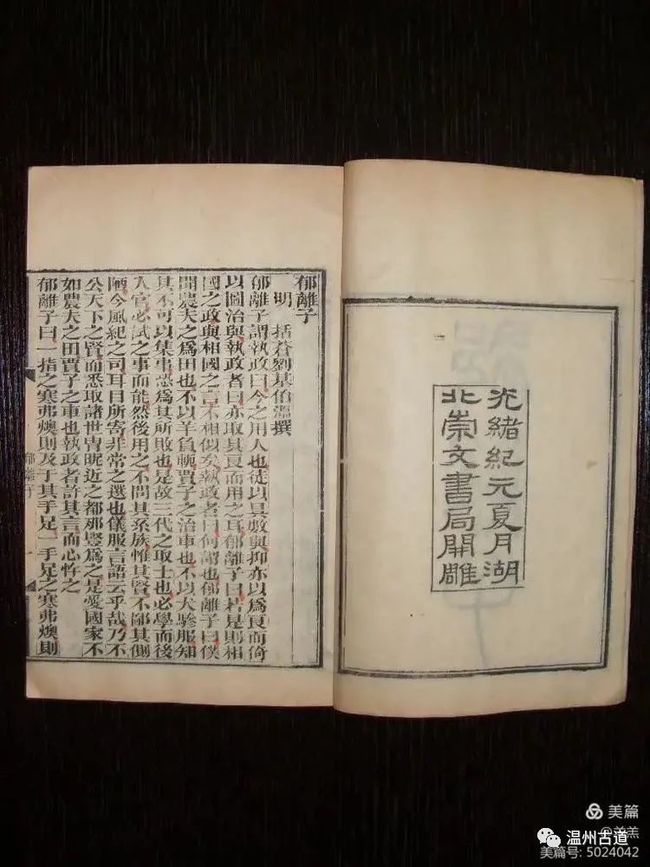 光緒紀元夏月湖
北崇文書局開雕
郁離子
明 括蒼劉基伯溫撰
郁離子謂執政曰今之用人也徒以具數與抑亦以為良而倚
以圖治與執政者曰亦取其良而用之耳郁離子曰若是則相
國之政與相國之言不相似矣執政者曰何謂也郁離子曰僕
聞農夫之為田也不以羊負軛賈子之治車也不以犬驂服知
其不可以集事恐為其所敗也是故三代之取士也必學而後
入官必試之事而能然後用之不問其系族惟其賢不鄙其側
陋今風紀之司耳目所寄非常之選也儀服言語云乎哉乃不
公天下之賢而悉取諸世胄昵近之都那豎為之是愛國家不
如農夫之田賈子之車也執政者許其言而心忤之
郁離子曰一指之寒弗燠則及于其手足一手足之寒弗燠則
郁離子
美篇
美篇号: 5024042
温州古道